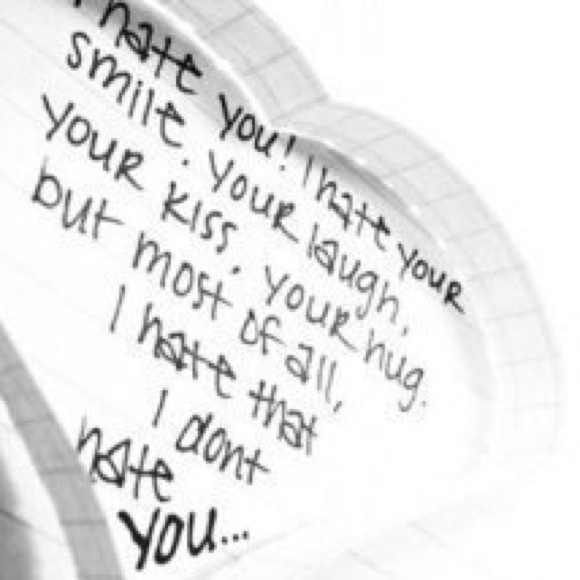 I hate you! I hate your
smile. your laugh,
your kiss, your hug.
but most of all,
I hate that
I dont
hate
you...